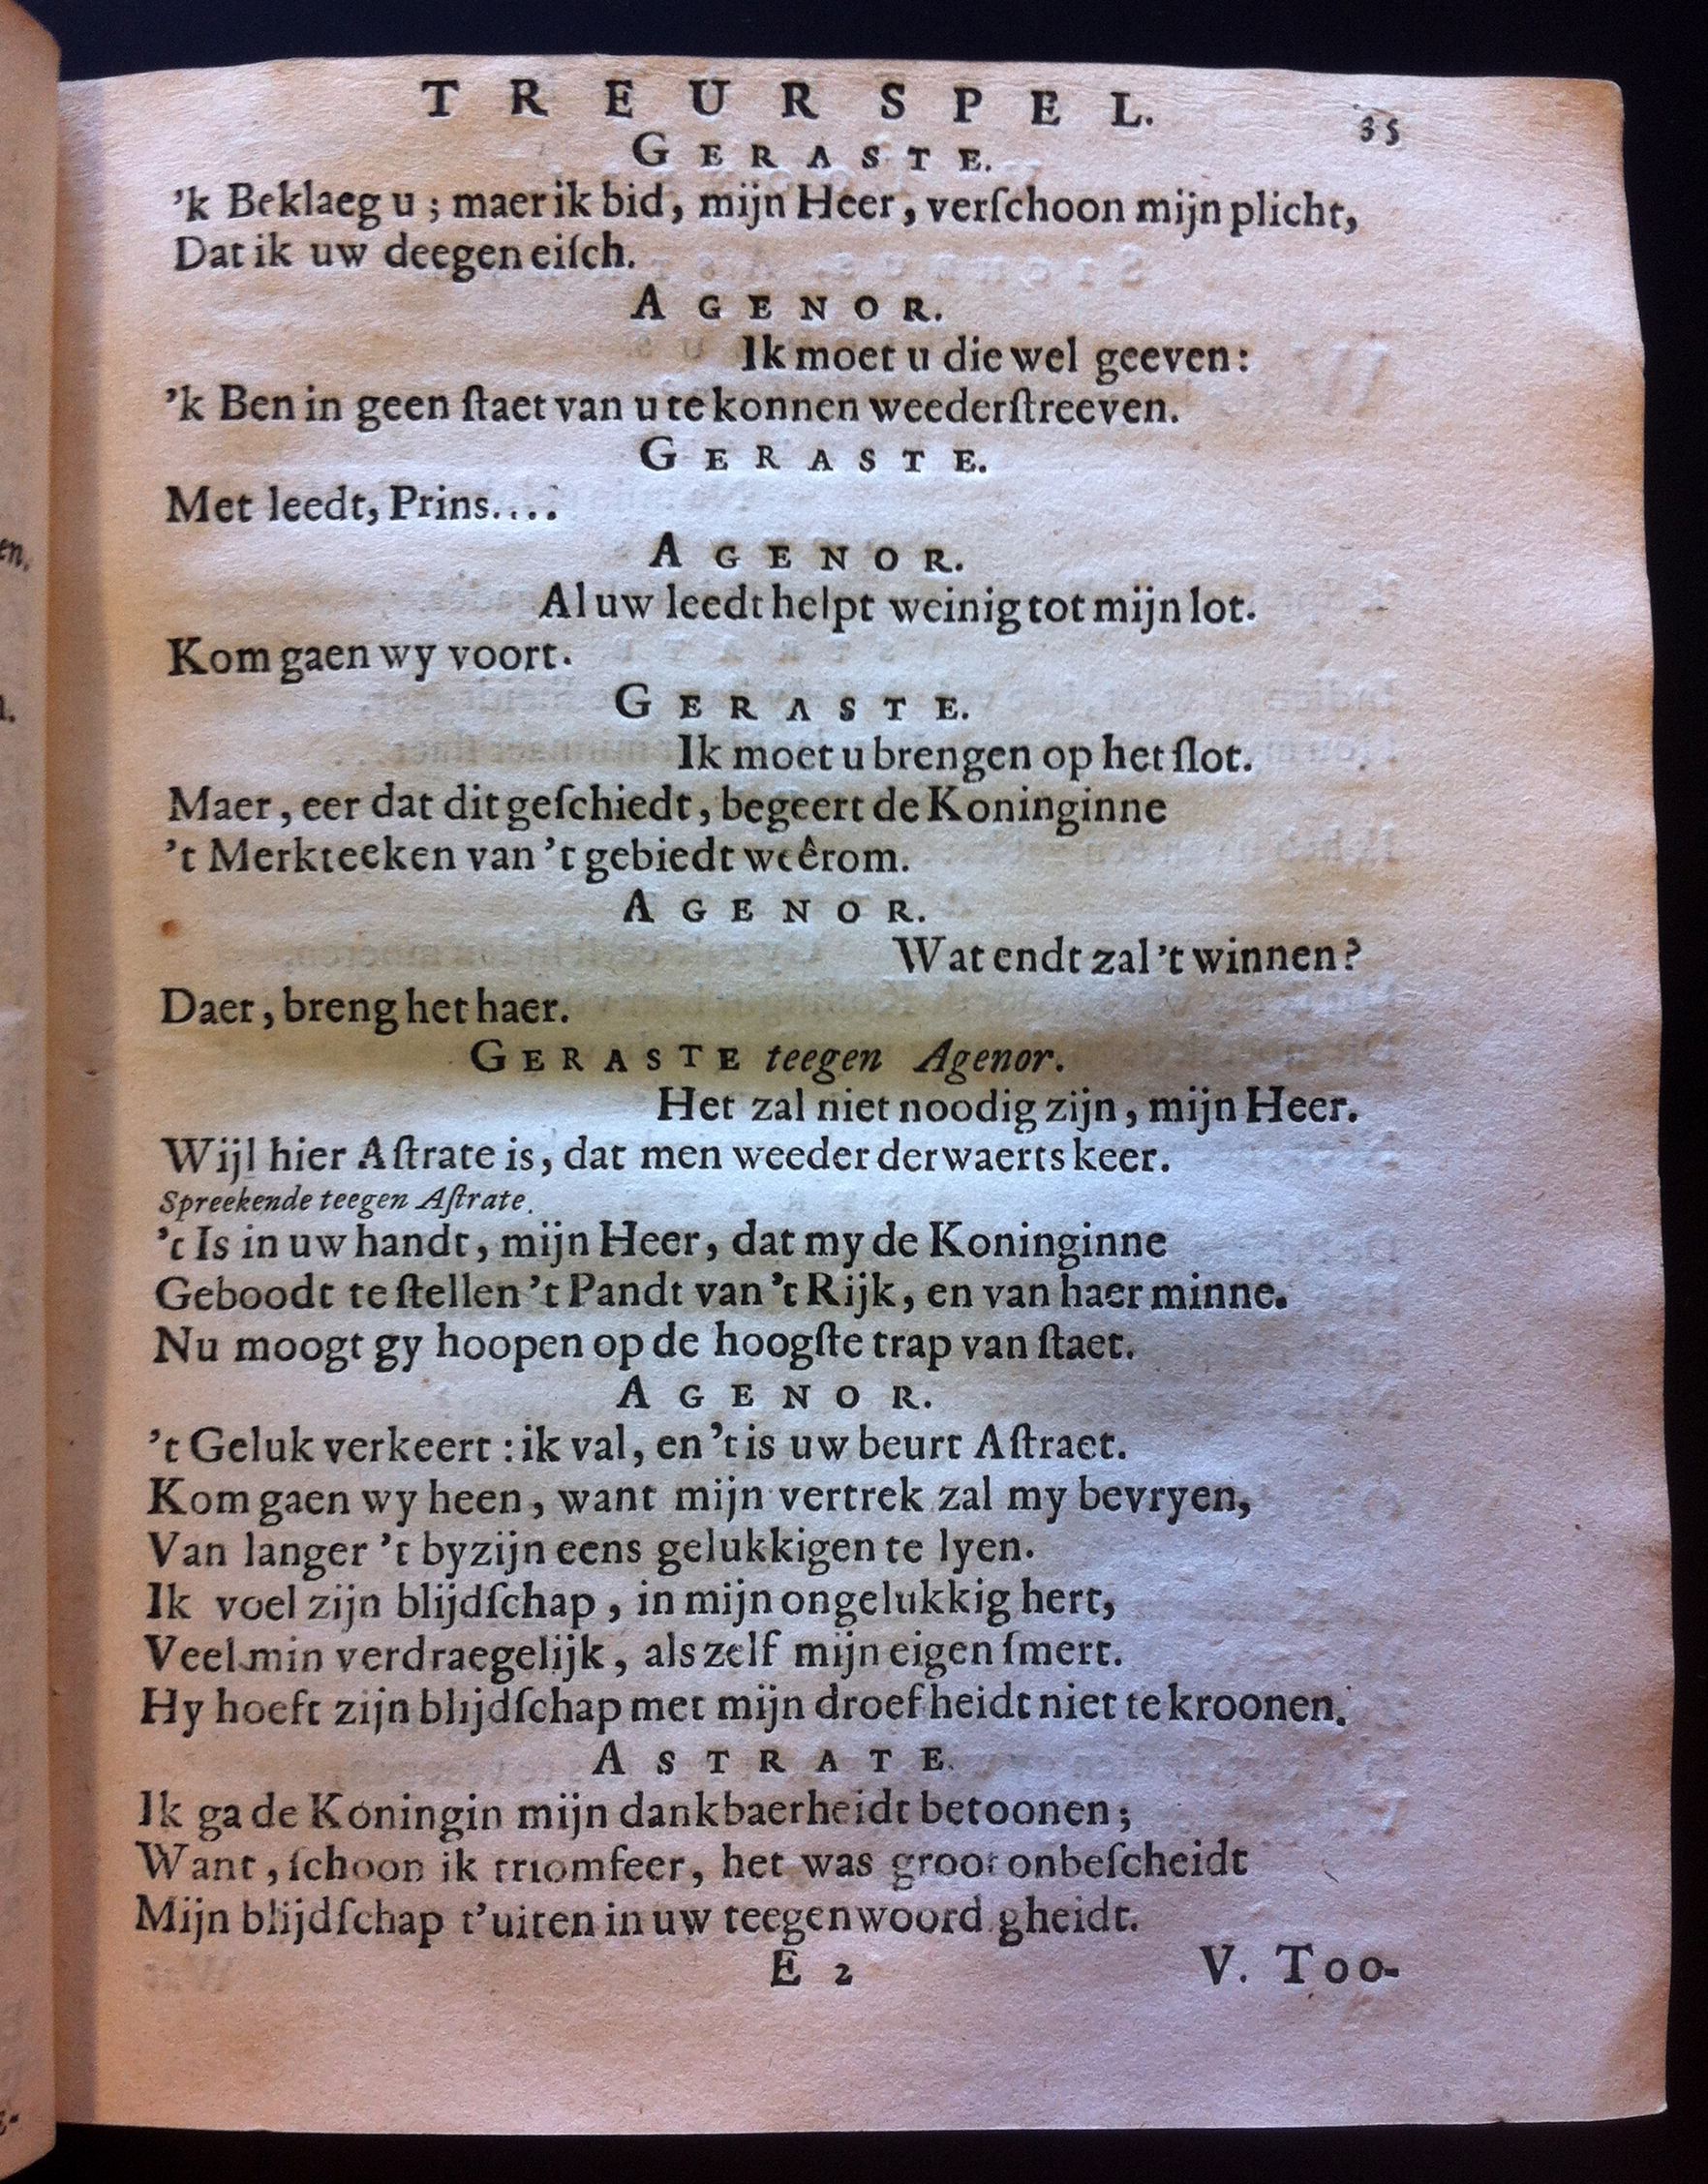 TREURSPEL. 35
GERASTE.
'k Beklaeg u ; maer ik bid, mijn Heer, verſchoon mijn plicht,
Dat ik uw deegen eiſch.
AGENOR.
Ik moet u die wel geeven:
'k Ben in geen ſtaet van u te konnen weederſtreeven.
GERASTE.
Met leedt, Prins....
AGENOR.
Al uw leedt helpt weinig tot mijn lot.
Kom gaen wy voort.
GERASTE.
Ik moet u brengen op het ſlot.
Maer, eer dat dit geſchiedt, begeert de Koninginne
't Merkteeken van 't gebiedt weêrom.
AGENOR.
Wat endt zal 't winnen?
Daer, breng het haer.
GERASTE teegen Agenor.
Het zal niet noodig zijn, mijn Heer.
Wijl hier Aſtrate is, dat men weeder derwaerts keer.
Spreekende teegen Aſtrate.
't Is in uw handt, mijn Heer, dat my de Koninginne
Geboodt te ſtellen 't Pandt van 't Rijk, en van haer minne.
Nu moogt gy hoopen op de hoogſte trap van ſtaet.
AGENOR.
't Geluk verkeert : ik val, en 't is uw beurt Aſtraet.
Kom gaen wy heen, want mijn vertrek zal my bevryen,
Van langer 't byzijn eens gelukkigen te lyen.
Ik voel zijn blijdſchap, in mijn ongelukkig hert,
Veel min verdraegelijk, als zelf mijn eigen ſmert.
Hy hoeft zijn blijdſchap met mijn droefheidt niet te kroonen.
ASTRATE.
Ik ga de Koningin mijn dankbaerheidt betoonen;
Want, ſchoon ik triomfeer, het was groot onbeſcheidt
Mijn blijdſchap t'uiten in uw teegenwoordigheidt.
E 2 V. Too-